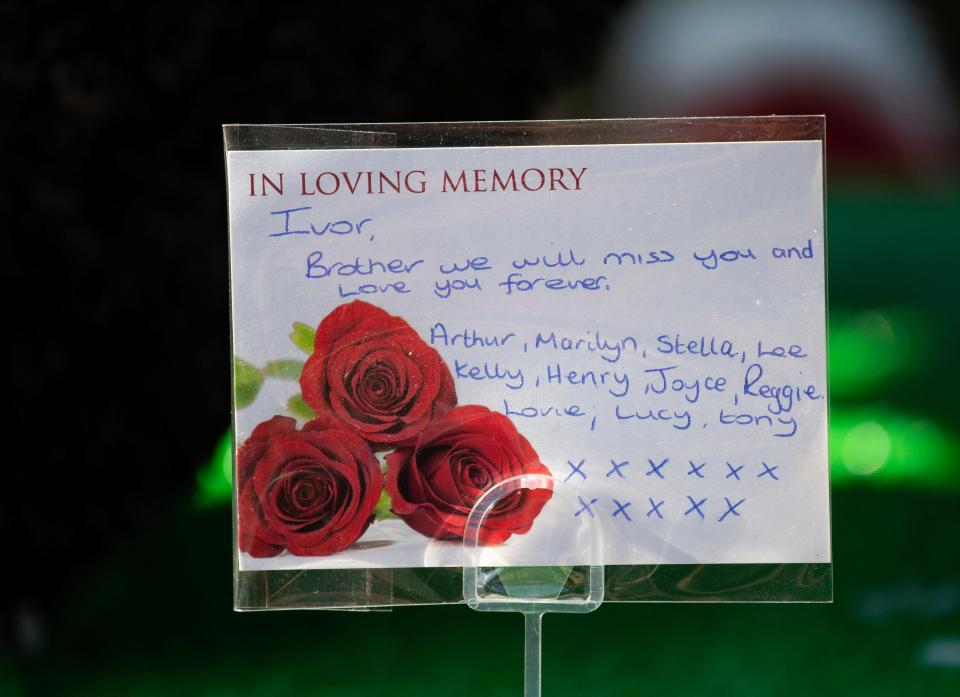 IN LOVING MEMORY
Ivor,
Brother we will miss you and
Love you forever.
Arthur, Marilyn, Stella, Lee
Kelly, Henry, Joyce, Reggie.
Lovie, Lucy, tony
x x x x x x
x x x x x